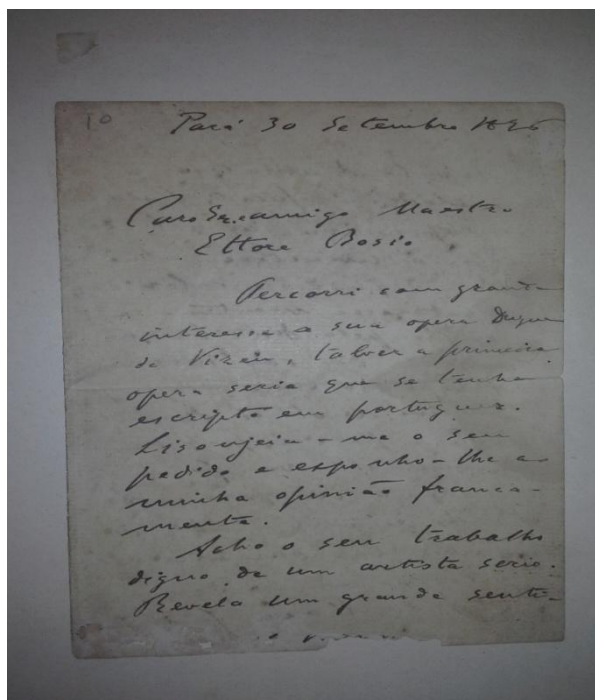 10
Pará 30 Setembro 1895
Caro Sr. e amigo Maestro
Ettore Bosio.
Percorri com grande
interesse a sua opera Duque
de Vizeu, talvez a primeira
opera seria que se tenha
escripto em portuguez.
Lisonjeia-me o seu
pedido e exponho-lhe a
minha opinião franca-
mente.
Acho o seu trabalho
digno de um artista serio.
Revela um grande senti-